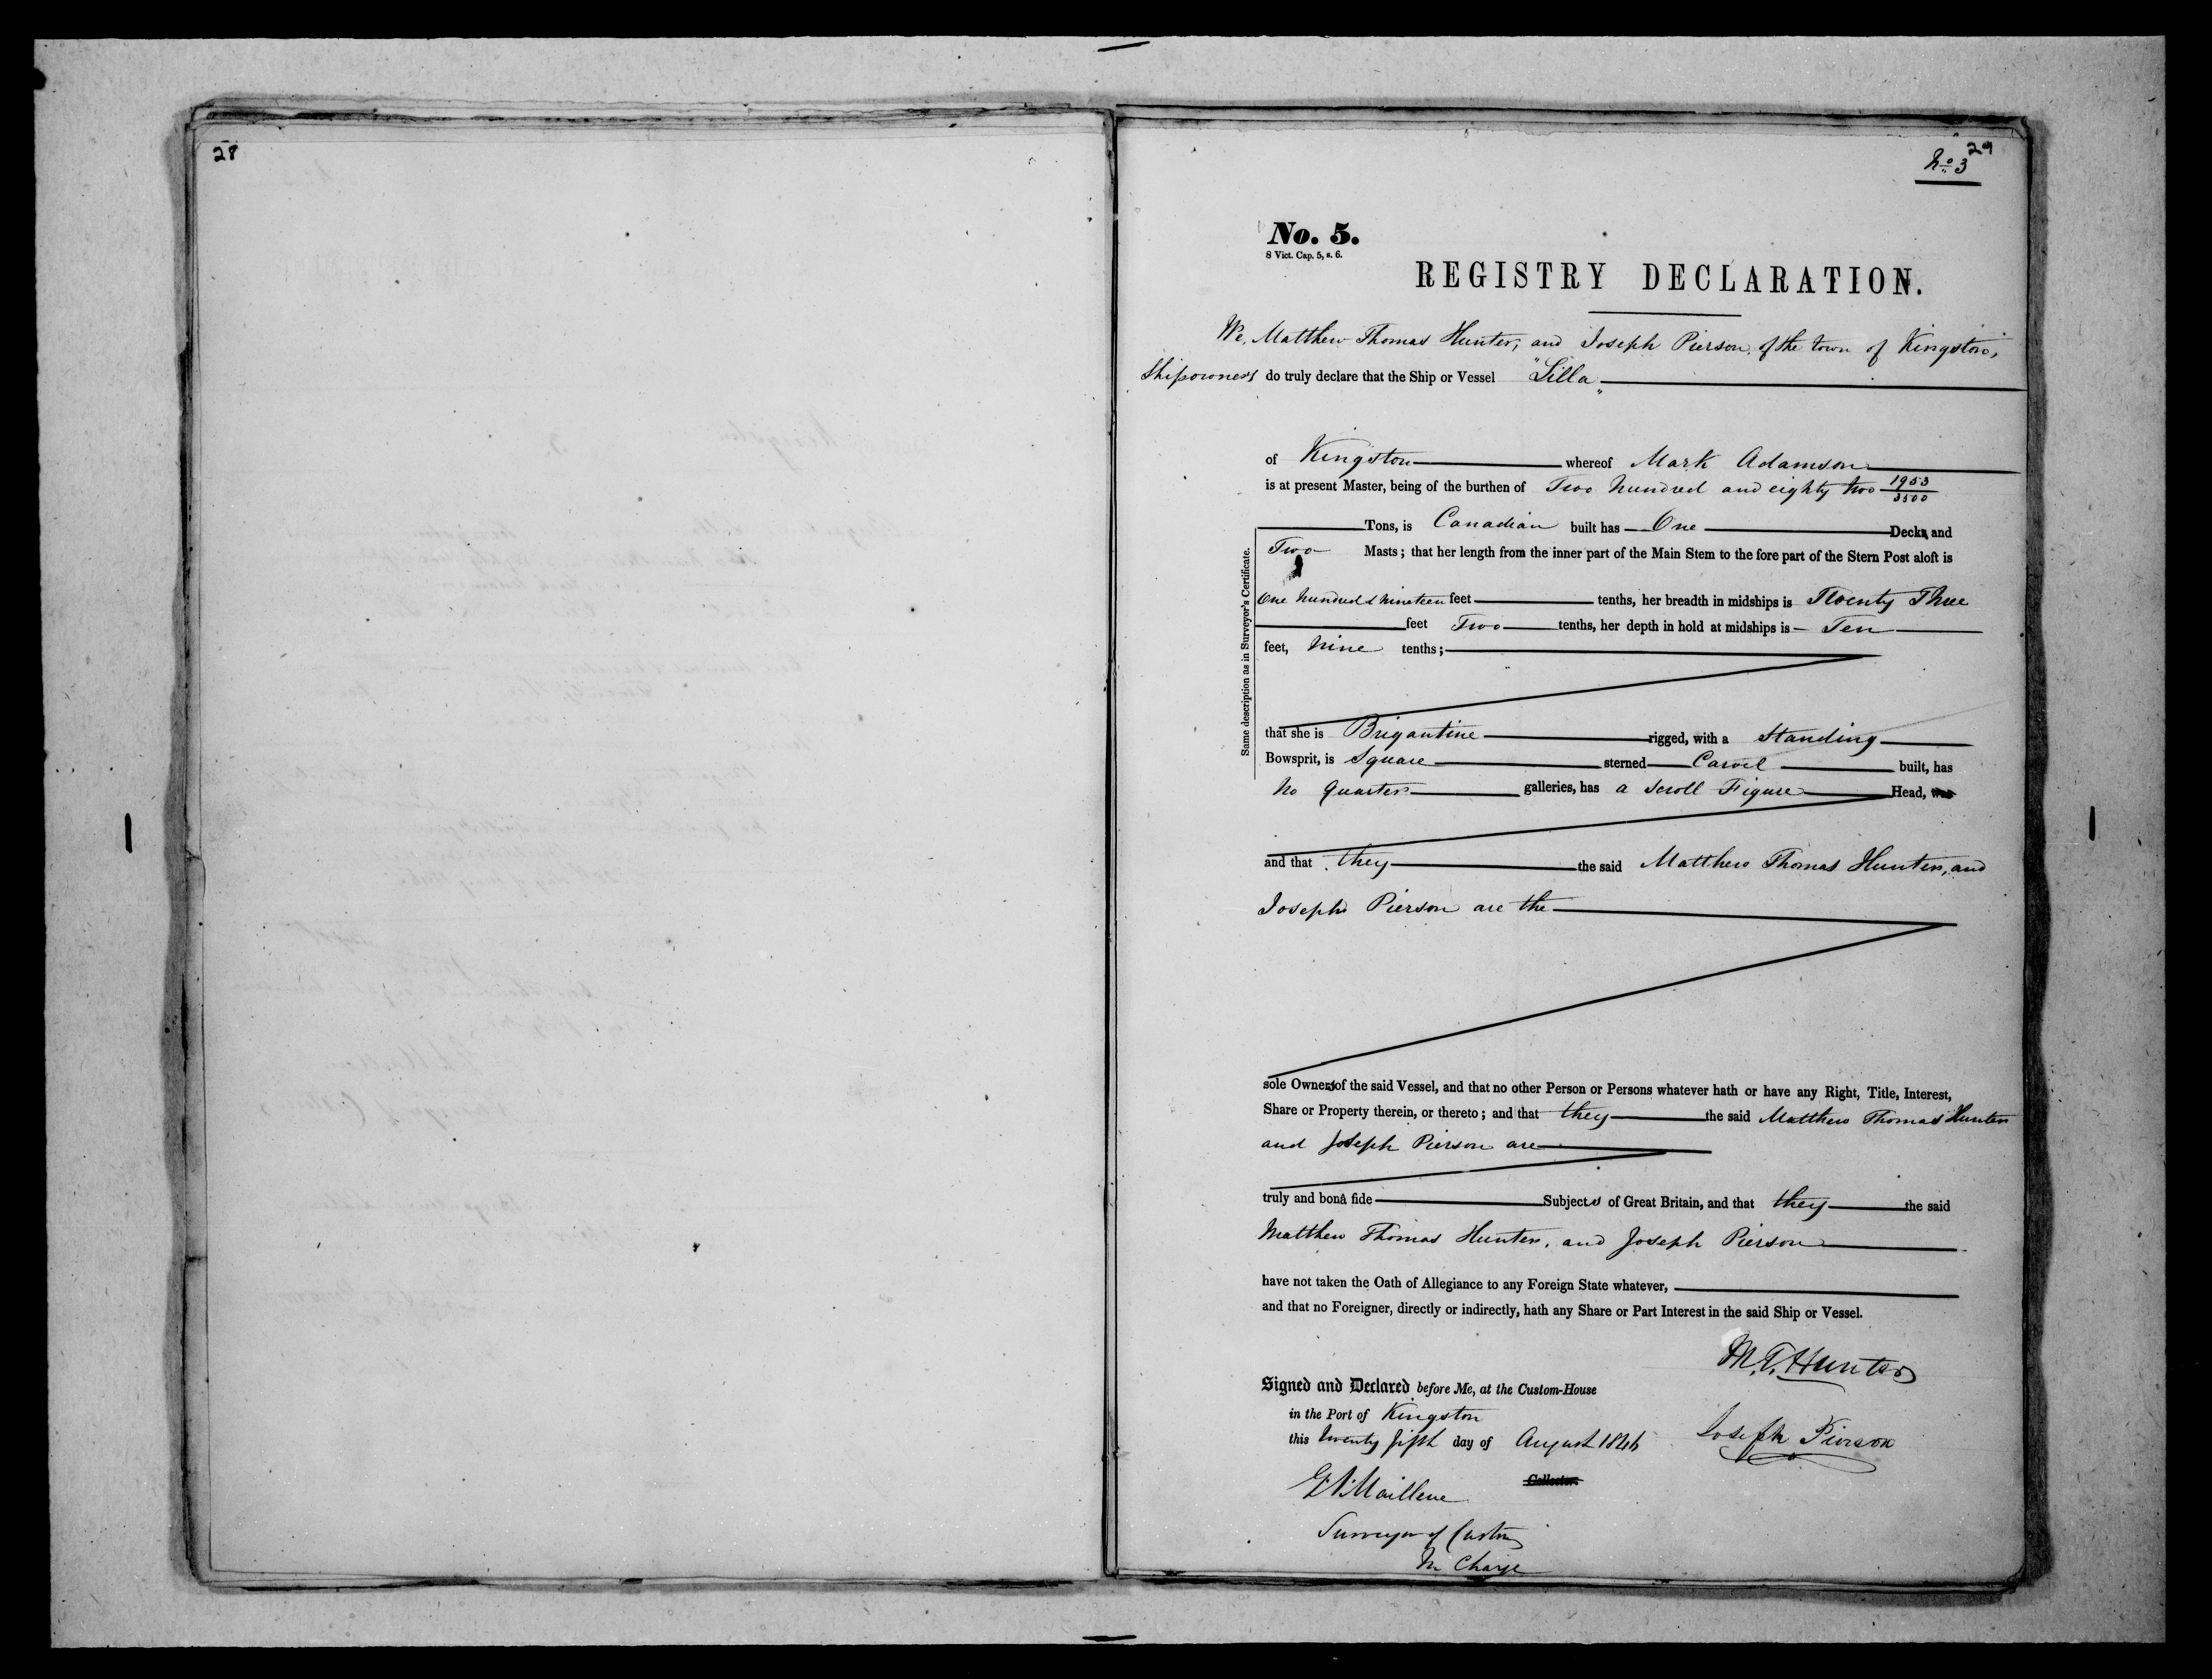 28
29
No. 3
No. 5.
8 Vict. Cap. 5, s. 6.
REGISTRY DECLARATION.
We, Matthew Thomas Hunter, and Joseph Pierson, of the town of Kingston,
Shipowners do truly declare that the Ship or Vessel "Lilla"
of Kingston whereof Mark Adamson
is at present Master, being of the burthen of Two hundred and eighty two 1953/3500
Tons, is Canadian built has One Deck, and
Two Masts; that her length from the inner part of the Main Stem to the fore part of the Stern Post aloft is
One hundred & nineteen feet tenths, her breadth in midships is Twenty Three
feet Two tenths, her depth in hold at midships is Ten
feet, Nine tenths;
Same description as in Surveyor's Certificate.
that she is Brigantine rigged, with a Standing
Bowsprit, is Square sterned Carvel built, has
No Quarter galleries, has a Scroll Figure Head, was
and that they the said Matthew Thomas Hunter, and
Joseph Pierson are the
sole Owners of the said Vessel, and that no other Person or Persons whatever hath or have any Right, Title, Interest,
Share or Property therein, or thereto; and that they the said Matthew Thomas Hunter
and Joseph Pierson are
truly and bonâ fide Subjects of Great Britain, and that they the said
Matthew Thomas Hunter, and Joseph Pierson
have not taken the Oath of Allegiance to any Foreign State whatever,
and that no Foreigner, directly or indirectly, hath any Share or Part Interest in the said Ship or Vessel.
M. T. Hunter
Signed and Declared before Me, at the Custom-House
in the Port of Kingston
this twenty fifth day of August 1846
Joseph Pierson
Collector.
Surveyor of Customs
In Charge